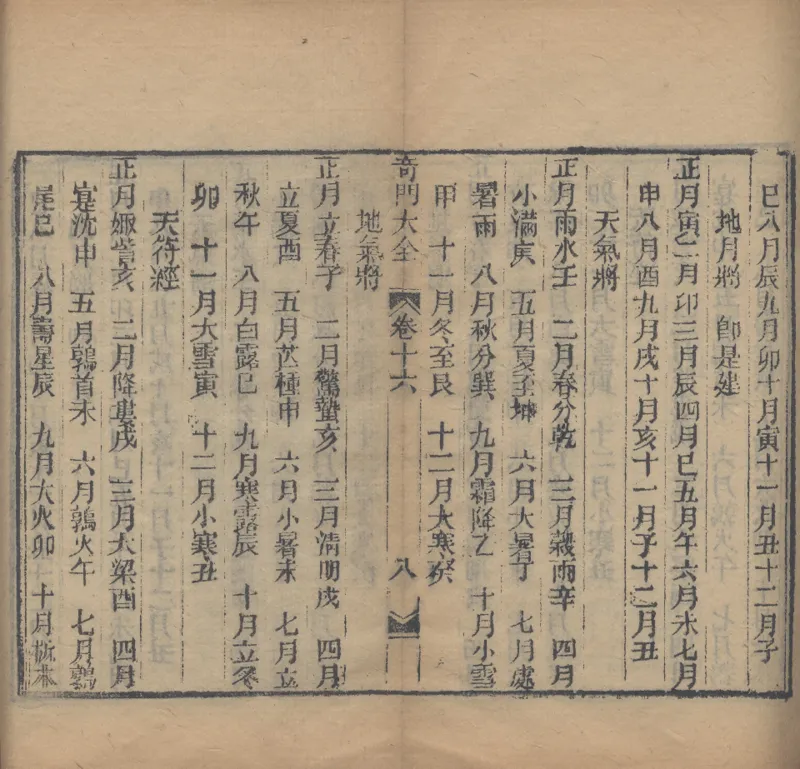 巳八月辰九月卯十月寅十一月丑十二月子
地月將 卽是建
正月寅二月卯三月辰四月巳五月午六月未七月
申八月酉九月戌十月亥十一月子十二月丑
天氣將
正月雨水壬 二月春分乾 三月穀雨辛 四月
小滿庚 五月夏至坤 六月大暑丁 七月處
暑丙 八月秋分巽 九月霜降乙 十月小雪
甲 十一月冬至艮 十二月大寒癸
奇門大全 卷十六 八
地氣將
正月立春子 二月驚蟄亥 三月清明戌 四月
立夏酉 五月芒種申 六月小暑未 七月立
秋午 八月白露巳 九月寒露辰 十月立冬
卯 十一月大雪寅 十二月小寒丑
天符經
正月娵訾亥 二月降婁戌 三月大梁酉 四月
寔沈申 五月鶉首未 六月鶉火午 七月鶉
尾巳 八月壽星辰 九月大火卯 十月析木